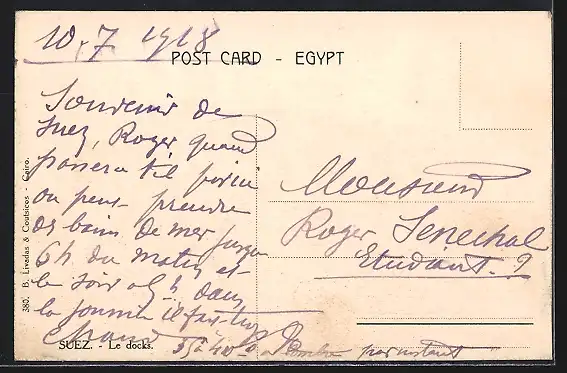 10.7 1918
POST CARD - EGYPT
Souvenir de
Suez, Roger quand
passera t'il par ici
on peut prendre
des bains de mer jusqu'
6 h du matin et
le soir 9 h dans
la journée il fait trop
chaud 35 à 40° à l'ombre par instant
Monsieur
Roger Senechal
Etudiant.
SUEZ. - Le docks.
380. B. Livadas & Coutsicos - Cairo.